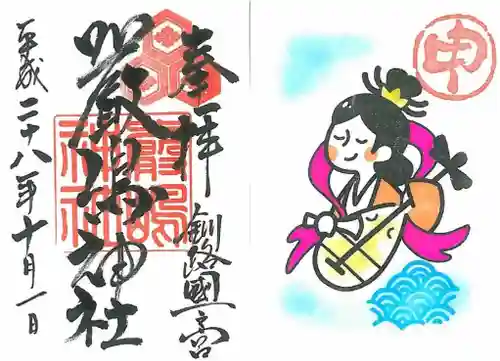 奉拝
釧路國一之宮
厳島神社
平成二十八年十月一日
嚴嶋神社
申